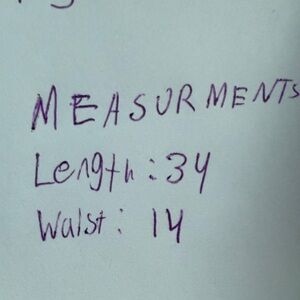 MEASURMENTS
Length: 34
Waist: 14